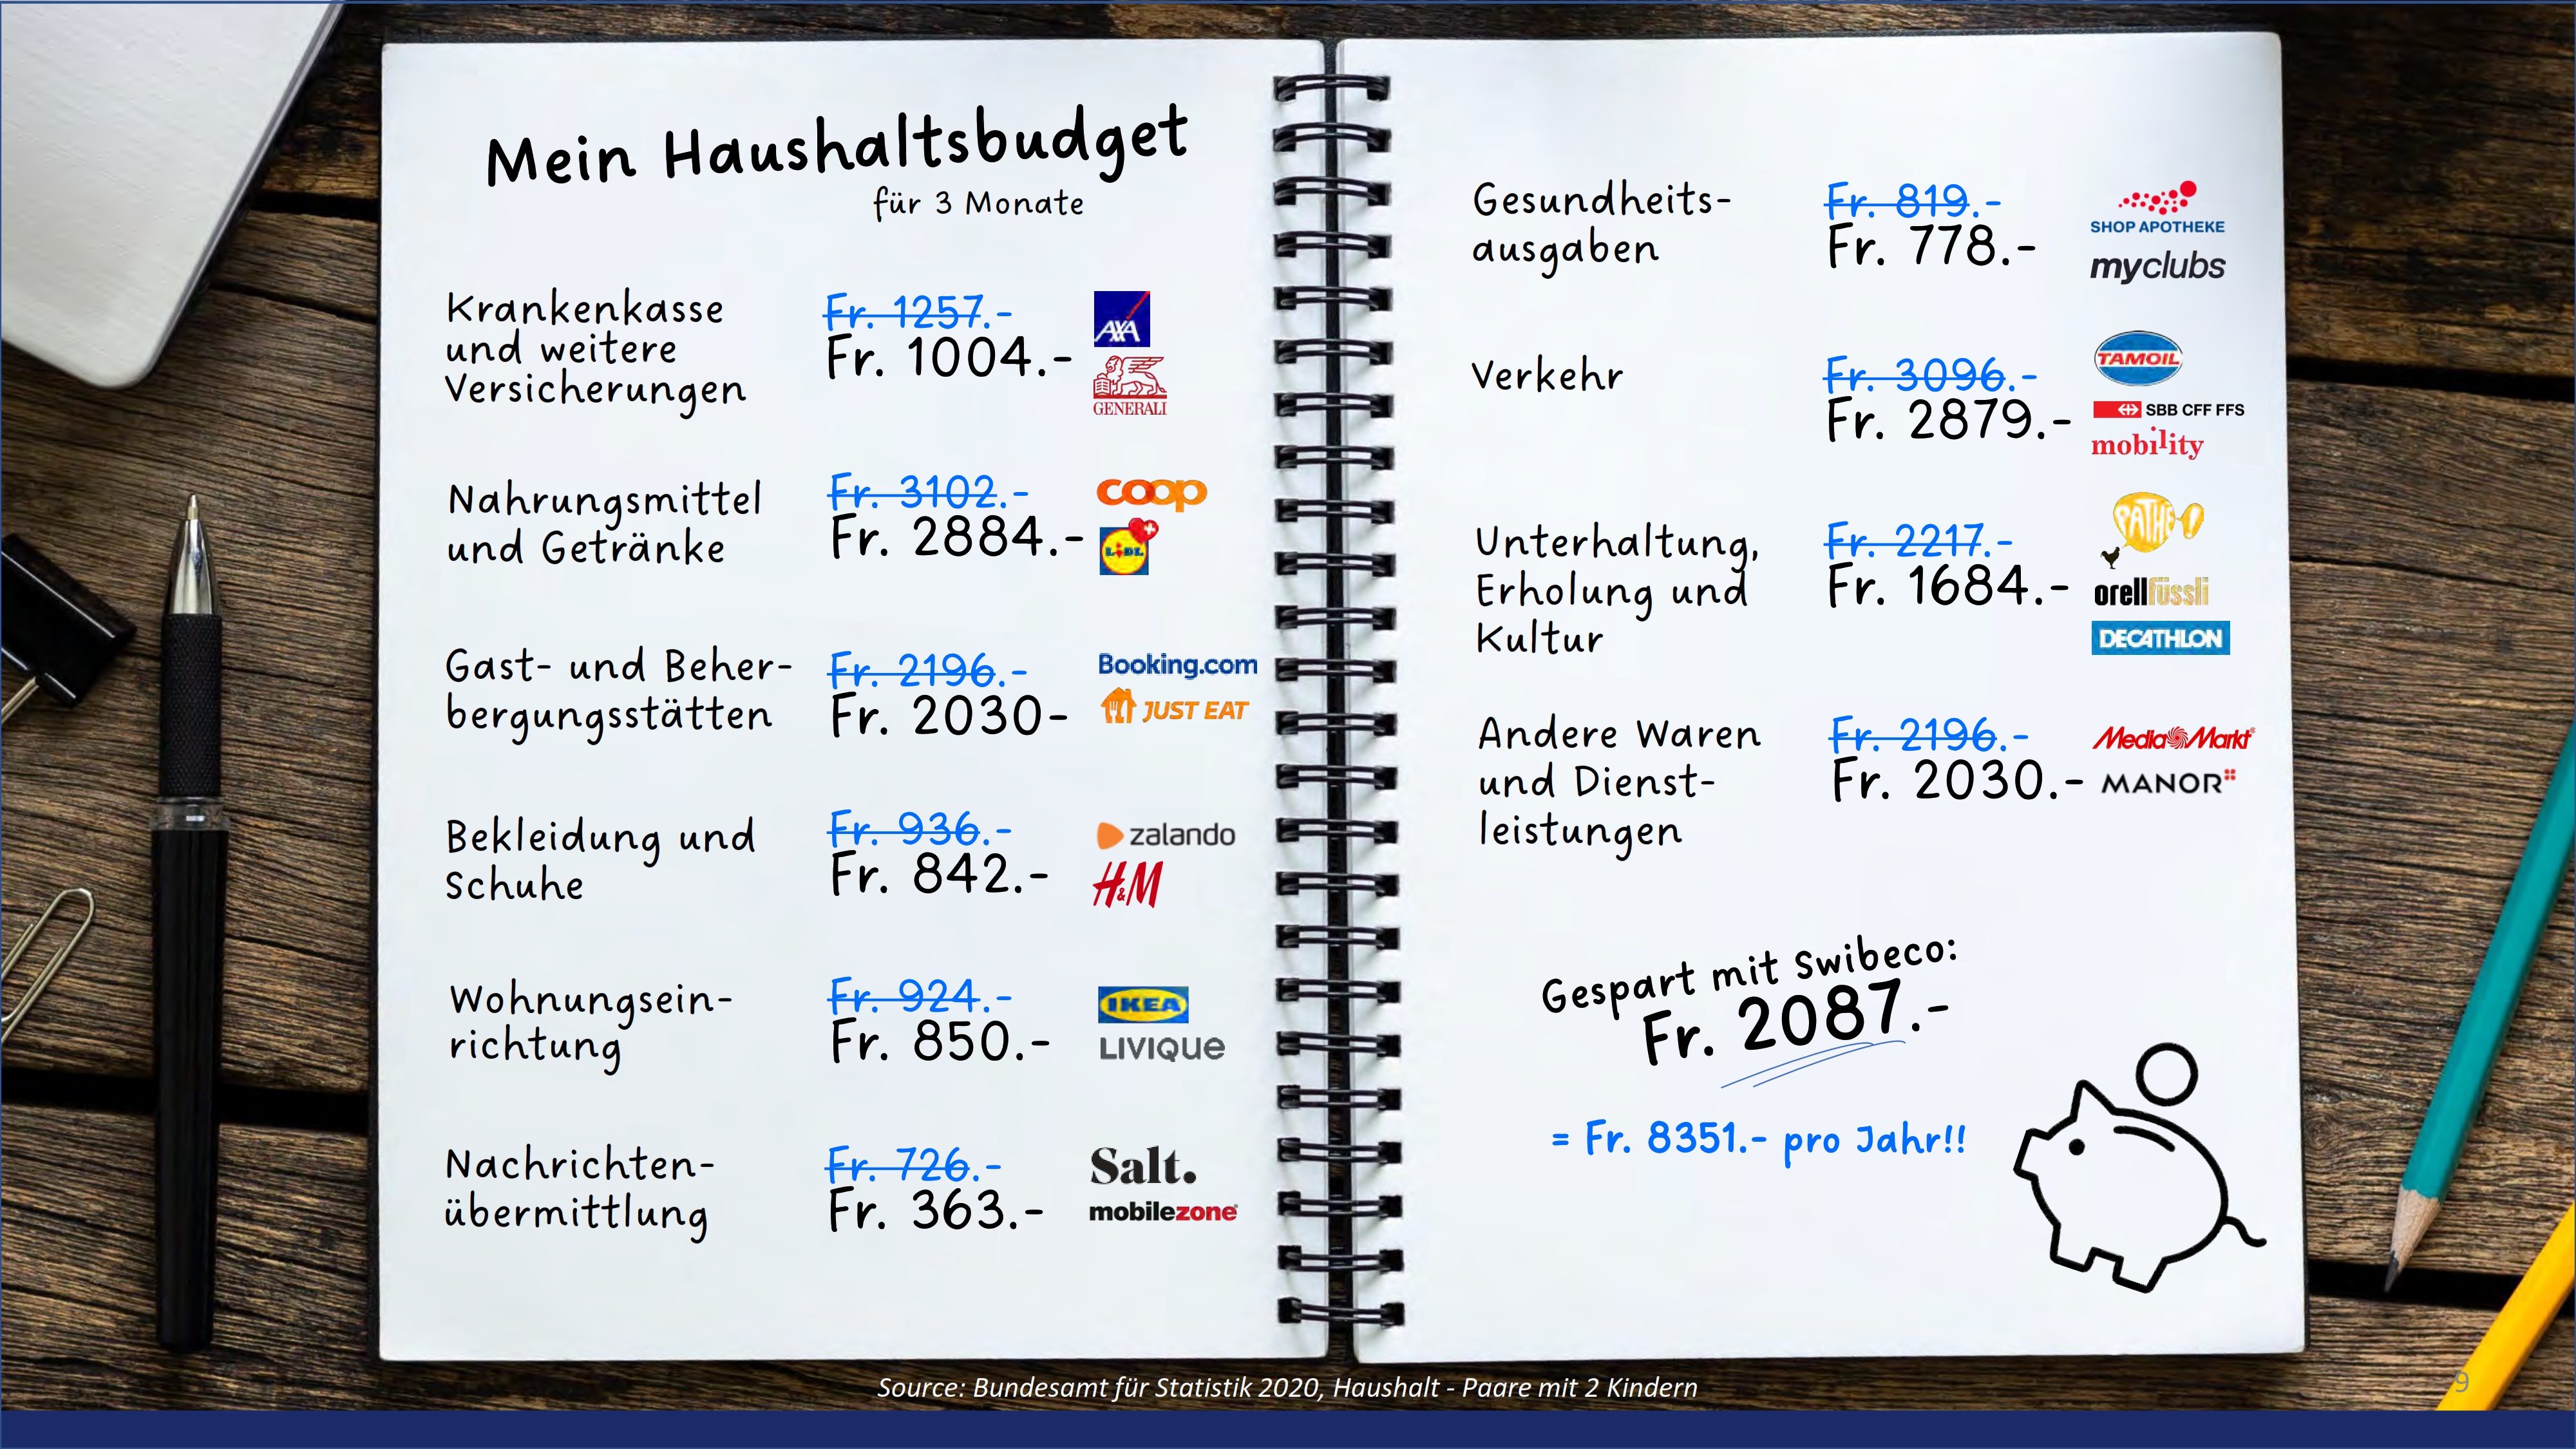 Mein Haushaltsbudget
für 3 Monate
Krankenkasse
und weitere
Versicherungen
Fr. 1257.-
Fr. 1004.-
AXA
GENERALI
Nahrungsmittel
und Getränke
Fr. 3102.-
Fr. 2884.-
coop
LIDL
Gast- und Beher-
bergungsstätten
Fr. 2196.-
Fr. 2030-
Booking.com
JUST EAT
Bekleidung und
Schuhe
Fr. 936.-
Fr. 842.-
zalando
H&M
Wohnungsein-
richtung
Fr. 924.-
Fr. 850.-
IKEA
LIVIQUE
Nachrichten-
übermittlung
Fr. 726.-
Fr. 363.-
Salt.
mobilezone
Gesundheits-
ausgaben
Fr. 819.-
Fr. 778.-
SHOP APOTHEKE
myclubs
Verkehr
Fr. 3096.-
Fr. 2879.-
TAMOIL
SBB CFF FFS
mobility
Unterhaltung,
Erholung und
Kultur
Fr. 2217.-
Fr. 1684.-
PATHE
orellfüssli
DECATHLON
Andere Waren
und Dienst-
leistungen
Fr. 2196.-
Fr. 2030.-
MediaMarkt
MANOR
Gespart mit Swibeco:
Fr. 2087.-
= Fr. 8351.- pro Jahr!!
Source: Bundesamt für Statistik 2020, Haushalt - Paare mit 2 Kindern
9